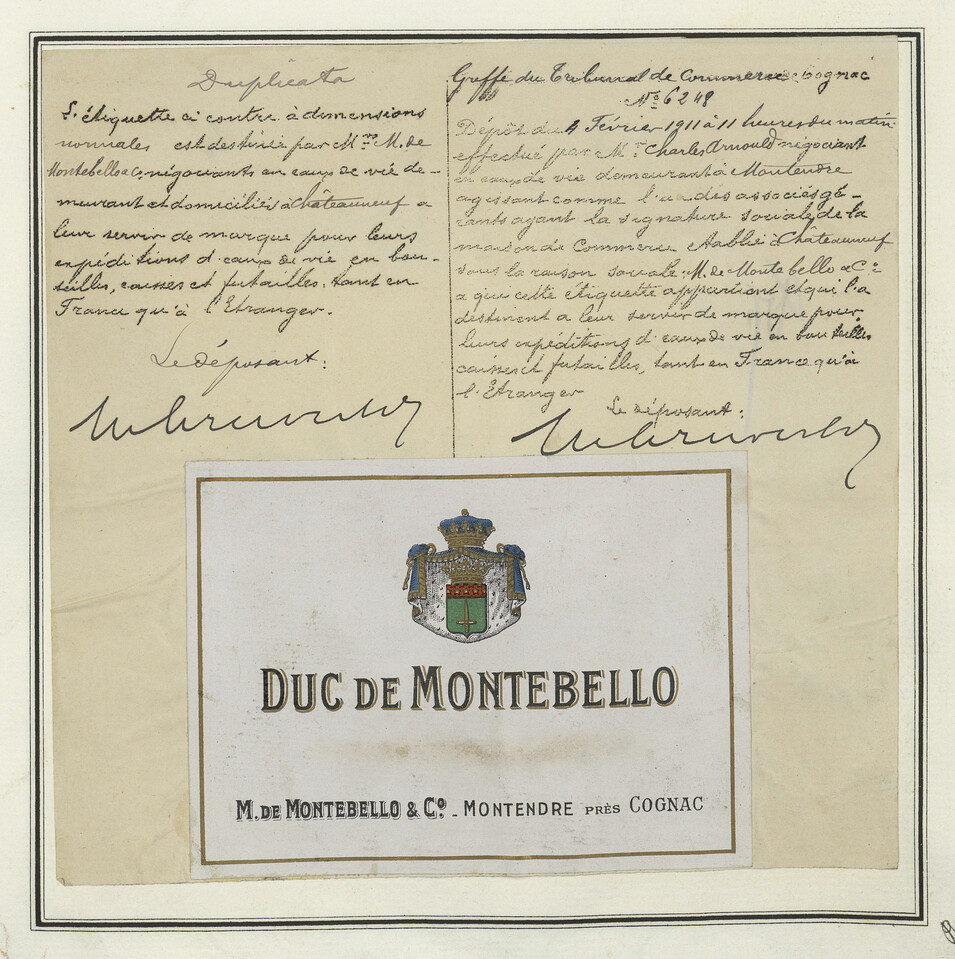 Duplicata
L'étiquette ci contre à dimensions
normales est destinée par Mrs M. de
Montebello & Co négociants en eaux de vie de-
meurant et domiciliés à Châteauneuf a
leur servir de marque pour leurs
expéditions d'eaux de vie en bou-
teilles, caisses et futailles, tant en
France qu'à l'Etranger.
Le déposant:
Greffe du Tribunal de Commerce de Cognac
No 6248
Dépôt du 4 Février 1911 à 11 heures du matin
effectué par Mr Charles Arnould négociant
en eaux de vie demeurant à Montendre
agissant comme l'un des associés gé-
rants ayant la signature sociale de la
maison de Commerce établie à Châteauneuf
sous la raison sociale: M. de Montebello & Cie
a que cette étiquette appartient et qu'il a
destinent a leur servir de marque pour
leurs expéditions d'eaux de vie en bouteilles
caisses et futailles, tant en France qu'à
l'Etranger
Le déposant:
DUC DE MONTEBELLO
M. DE MONTEBELLO & Co. - MONTENDRE PRÈS COGNAC